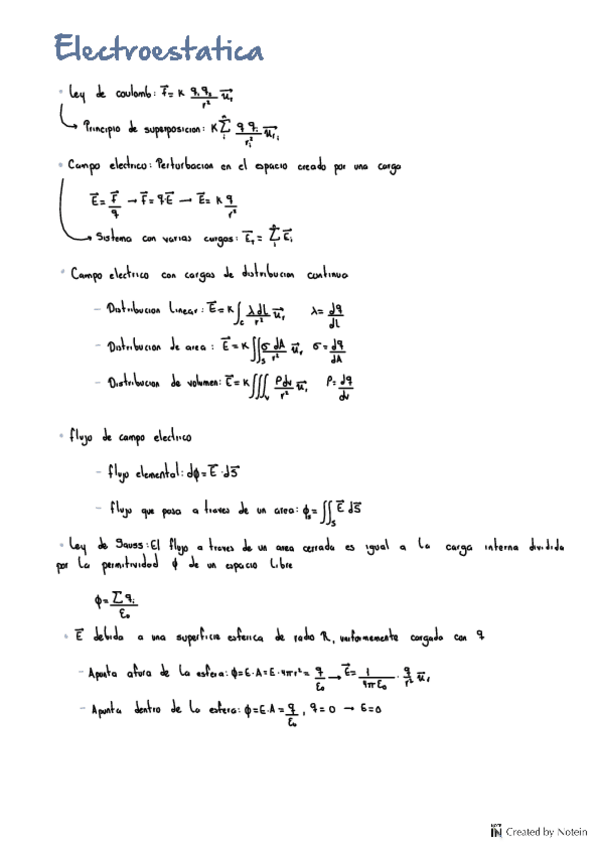 Electroestatica
• Ley de coulomb: F⃗ = K q₁q₂/r² u⃗r
Principio de superposicion: K Σ q qi/ri² u⃗ri
• Campo electrico: Perturbacion en el espacio creado por una carga
E⃗ = F⃗/q → F⃗ = q·E⃗ → E⃗ = K q/r²
Sistema con varias cargas: E⃗T = Σ E⃗i
• Campo electrico con cargas de distribucion continua
– Distribucion linear: E⃗ = K ∫c λdL/r² u⃗r λ = dq/dL
– Distribucion de area: E⃗ = K ∬s σ dA/r² u⃗r σ = dq/dA
– Distribucion de volumen: E⃗ = K ∭v ρdv/r² u⃗r ρ = dq/dv
• flujo de campo electrico
– flujo elemental: dϕ = E⃗ · ds⃗
– flujo que pasa a traves de un area: ϕs = ∬s E⃗ ds⃗
• Ley de Gauss: El flujo a traves de un area cerrada es igual a la carga interna dividida
por la permitividad ϕ de un espacio libre
ϕ = Σ qi/ε₀
• E⃗ debida a una superficie esferica de radio R, uniformemente cargado con q
– Apunta afora de la esfera: ϕ = E·A = E·4πr² = q/ε₀ → E⃗ = 1/4πε₀ · q/r² u⃗r
– Apunta dentro de la esfera: ϕ = E·A = q/ε₀, q = 0 → E = 0
NOTE IN Created by Notein